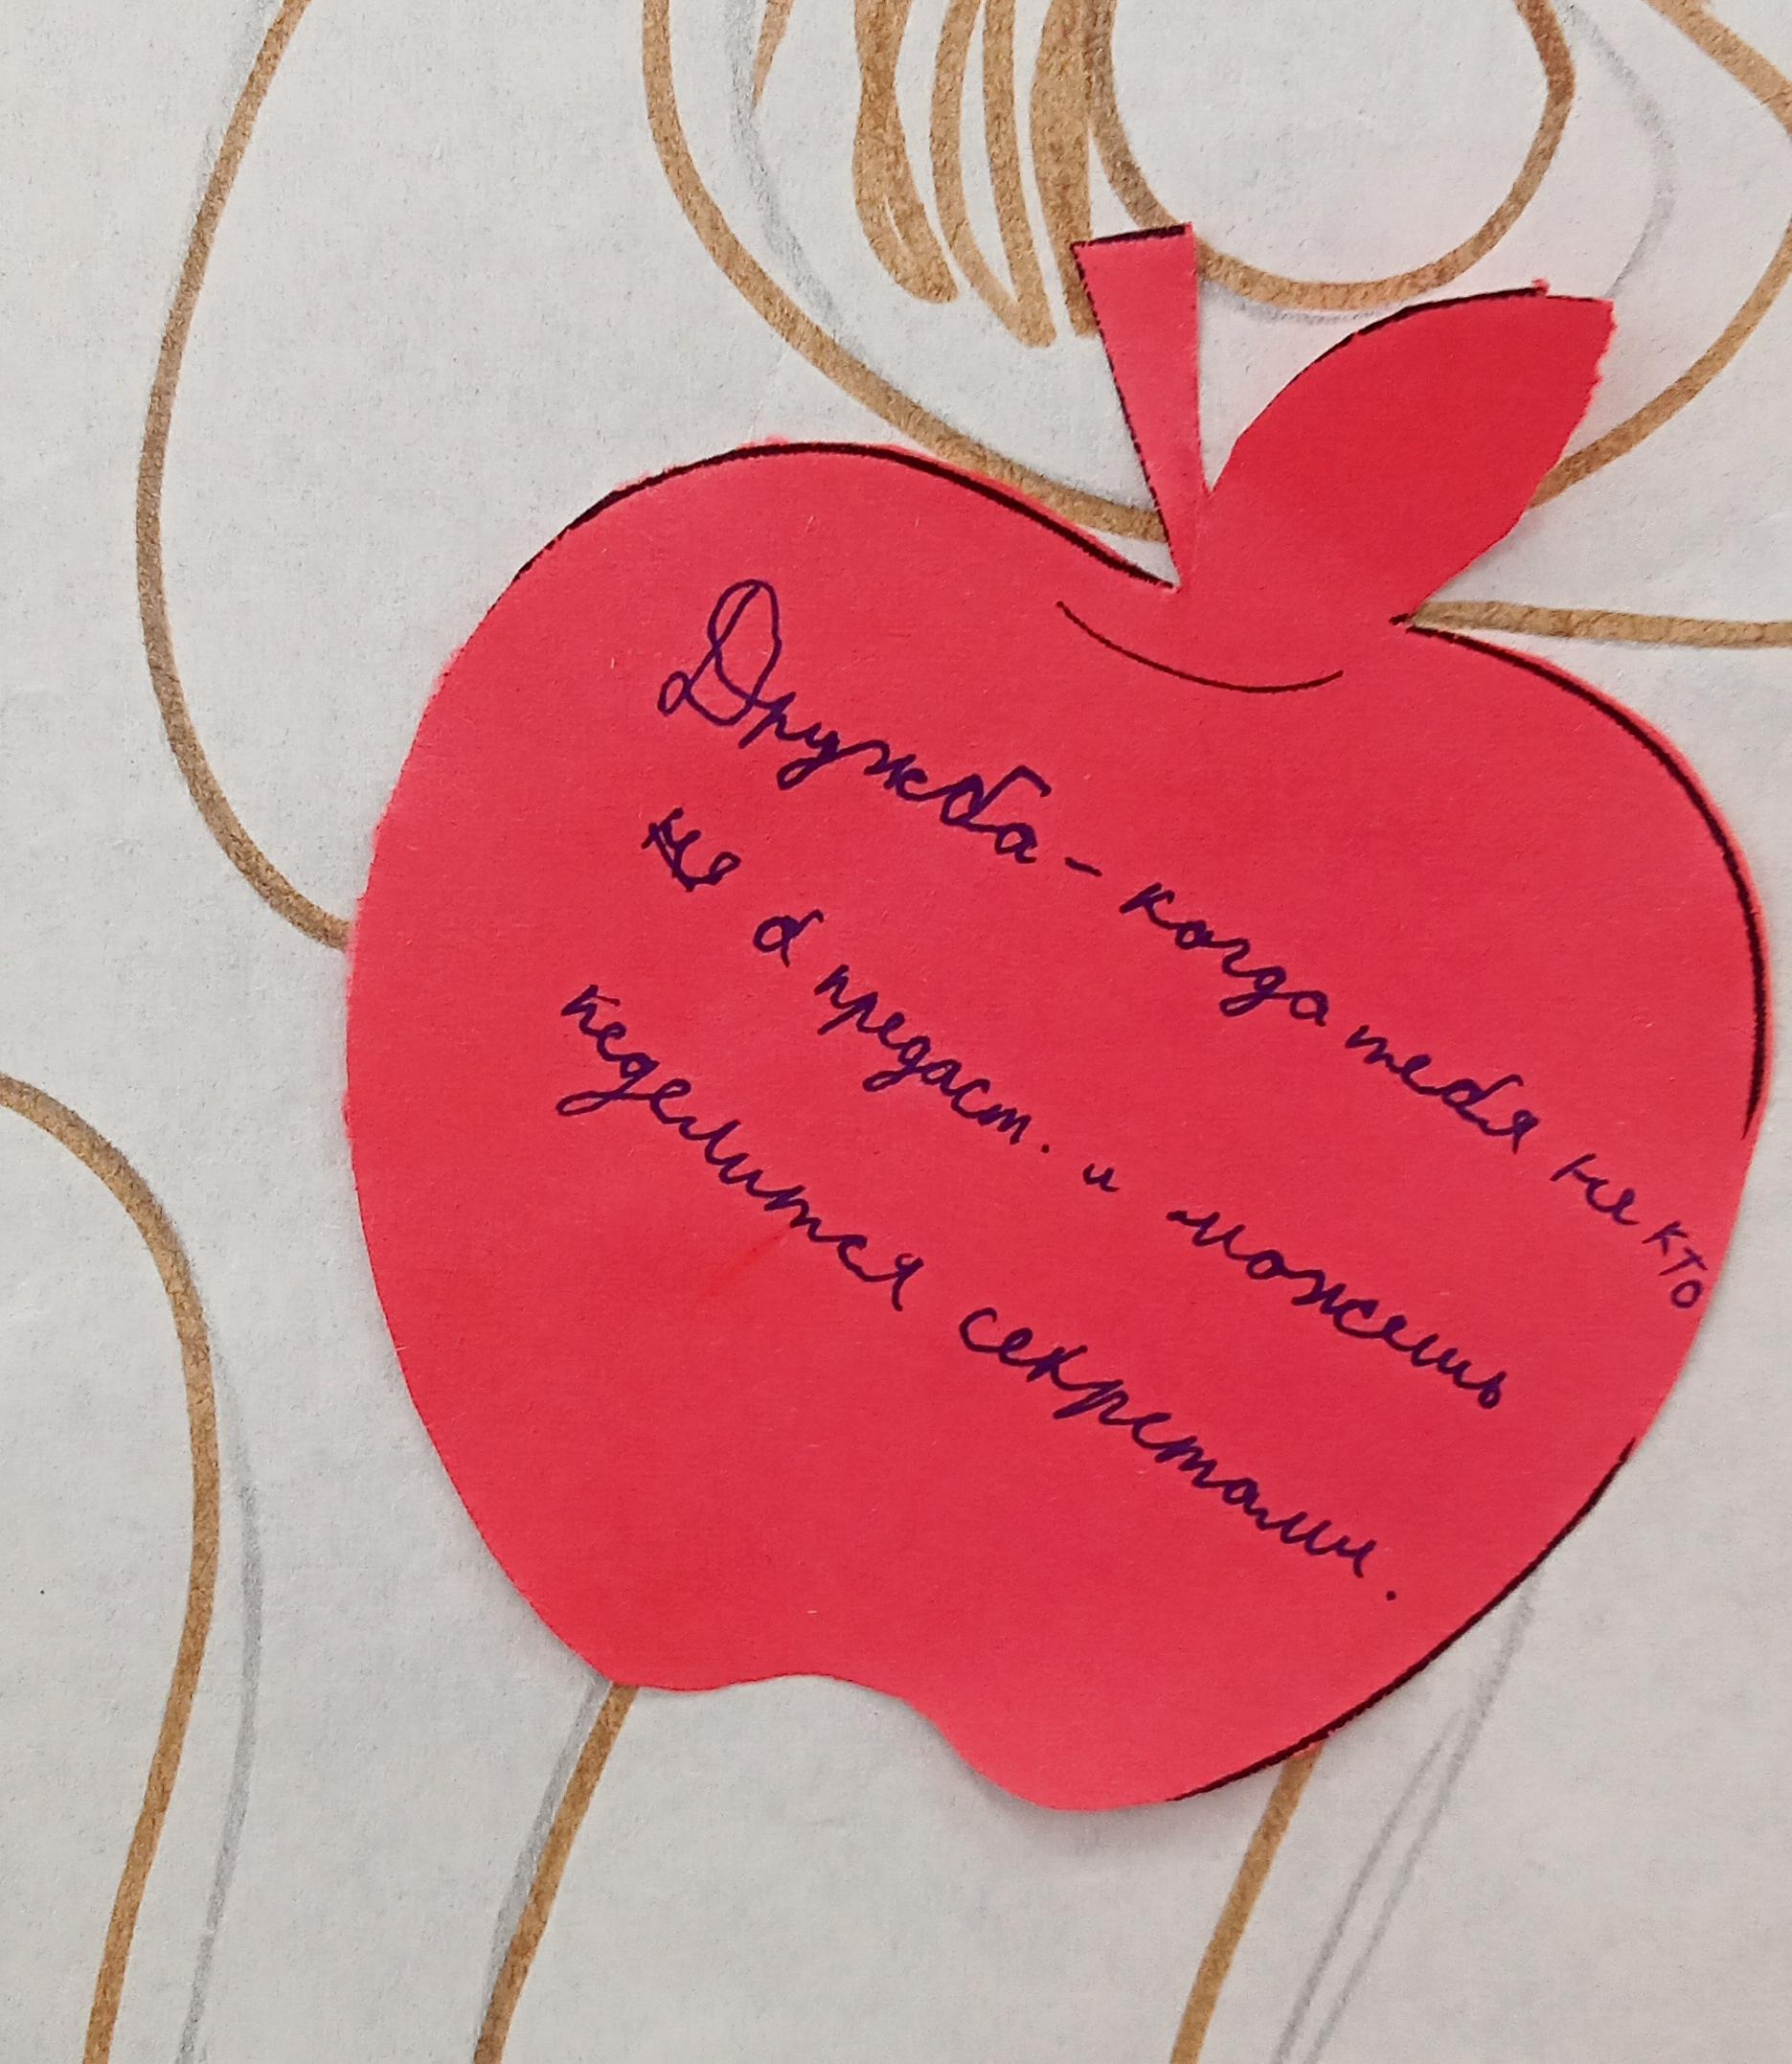 Дружба - когда тебя ни кто
не предаст. и можешь
неделится секретами.